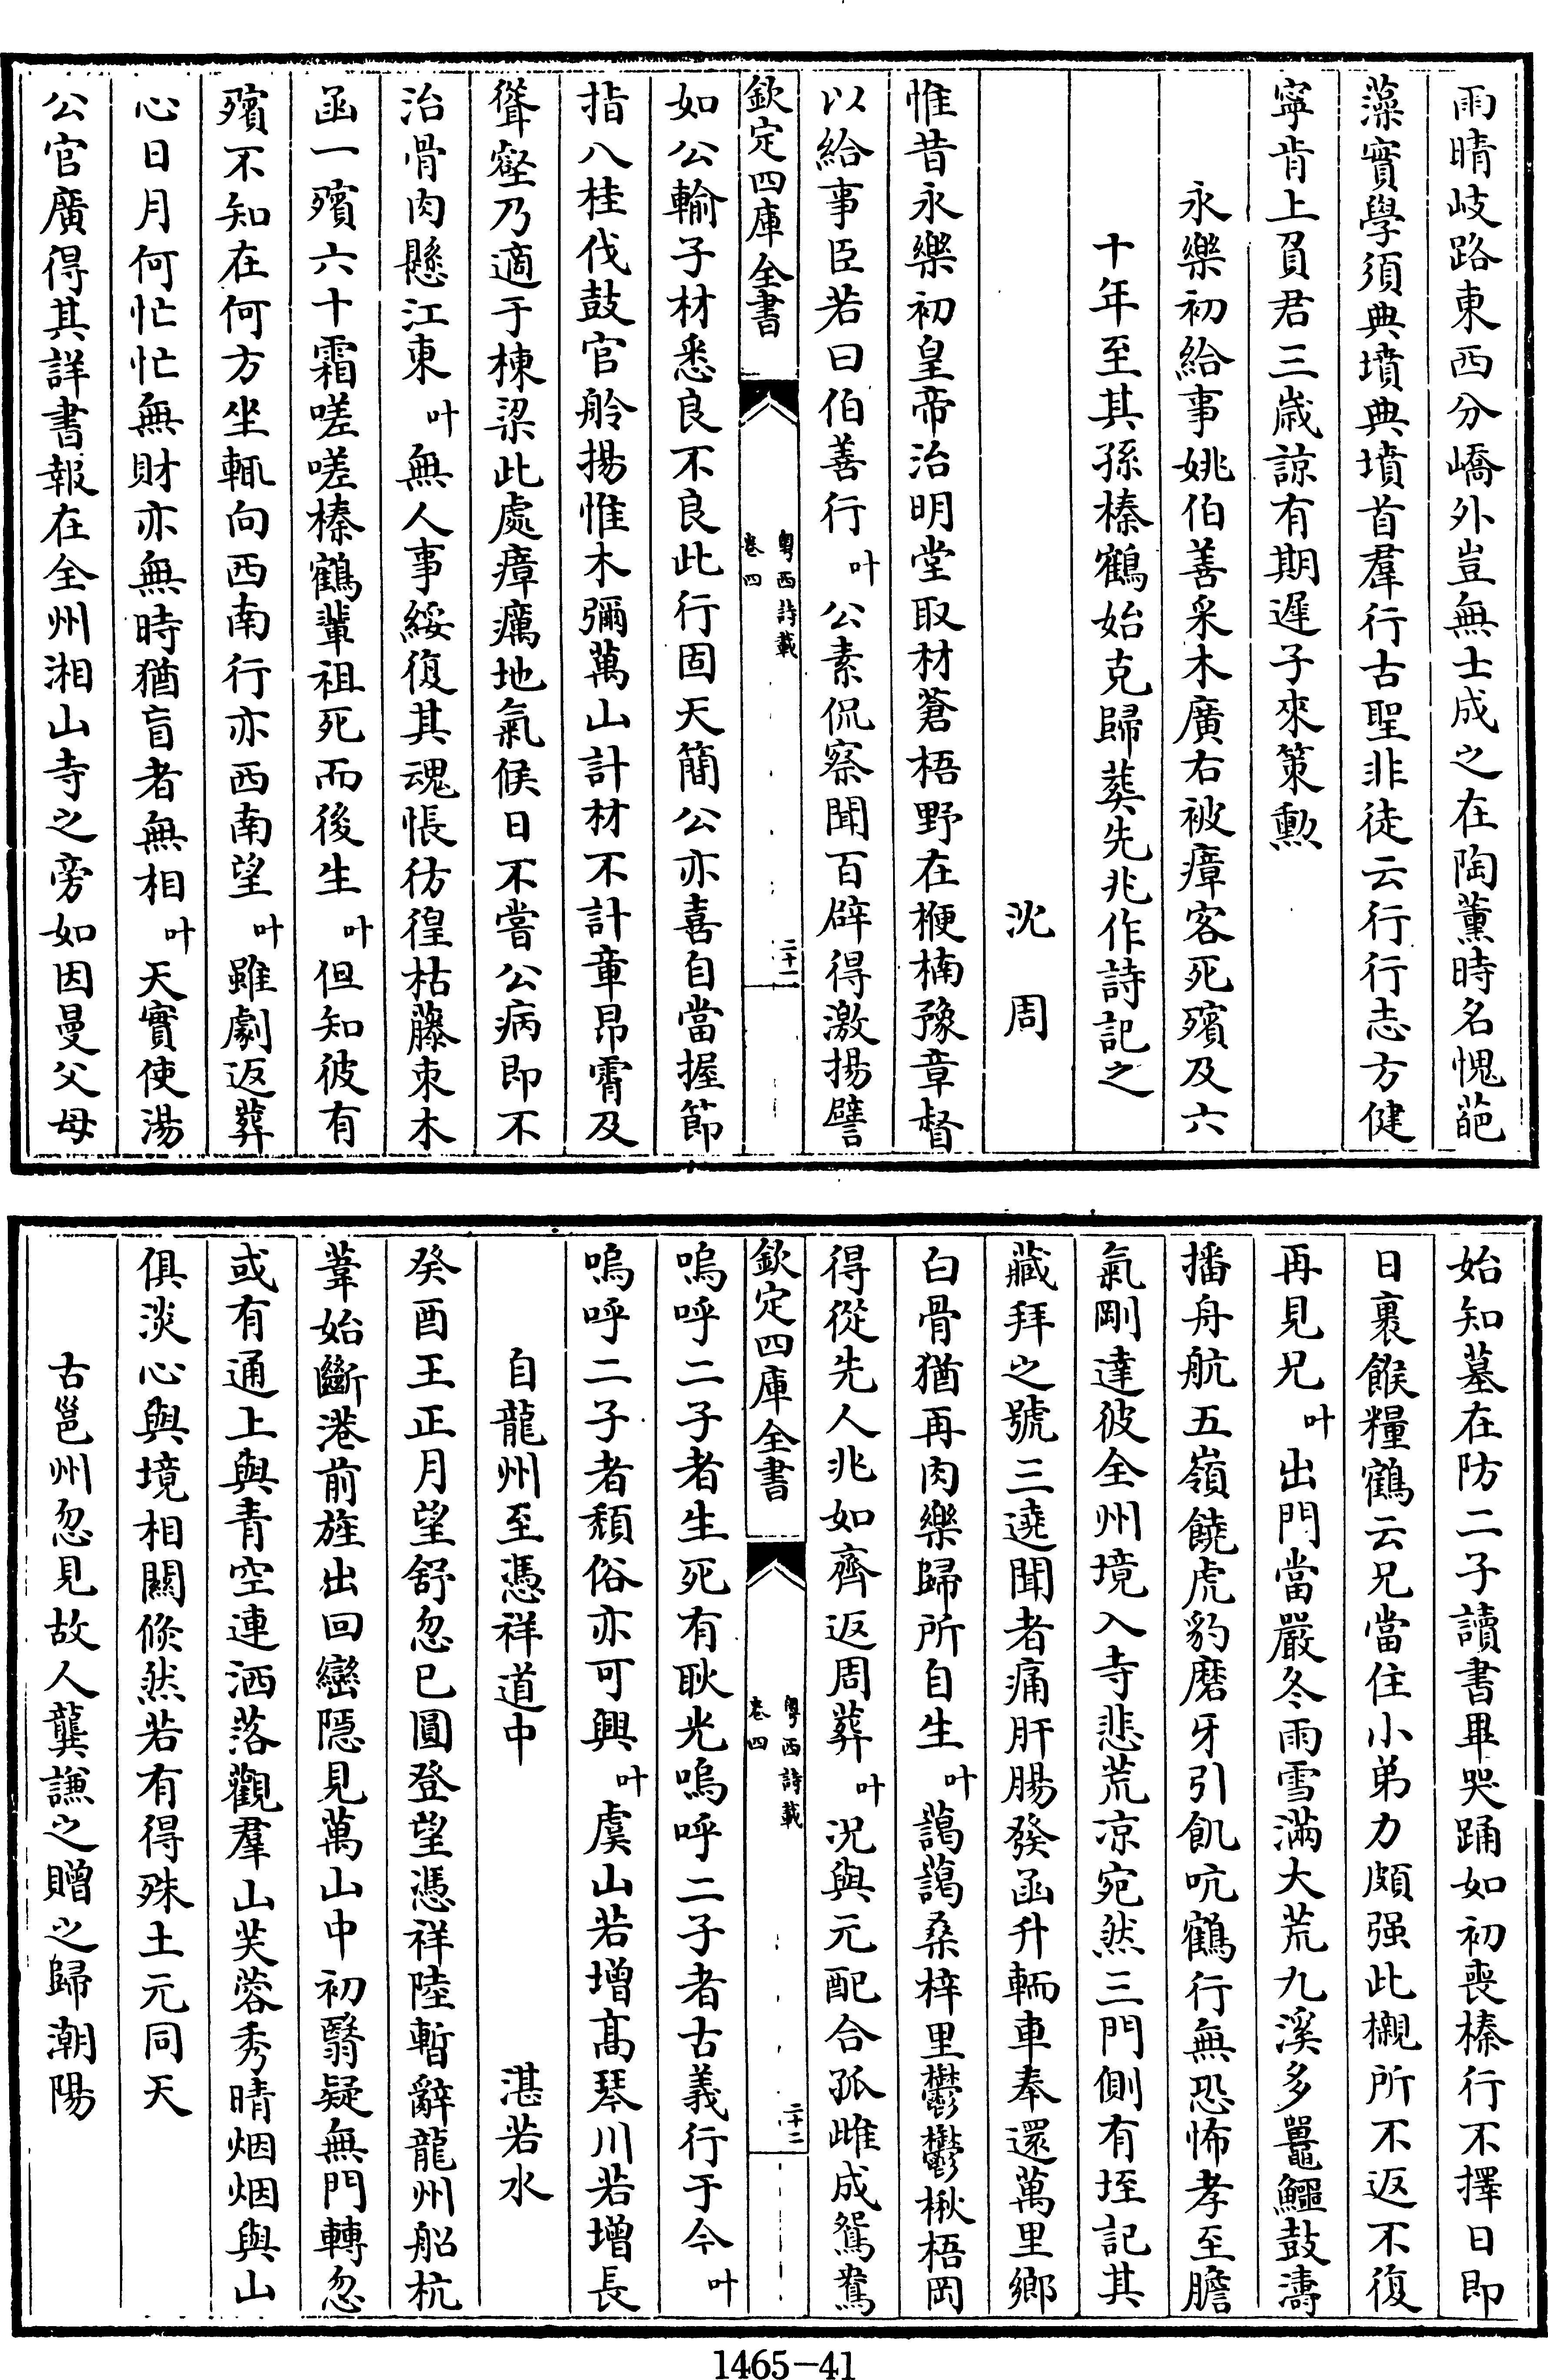 雨晴岐路東西分嶠外豈無士成之在陶薰時名愧葩
藻實學須典墳典墳首羣行古聖非徒云行行志方健
寧肯上負君三歳諒有期遲子來策勲
永樂初給事姚伯善采木廣右被瘴客死殯及六
十年至其孫榛鶴始克歸葬先兆作詩記之
沈周
惟昔永樂初皇帝治明堂取材蒼梧野在楩楠豫章督
以給事臣若曰伯善行叶公素侃察聞百辟得激揚譬
欽定四庫全書
粤西詩載
卷四
二十一
如公輸子材悉良不良此行固天簡公亦喜自當握節
指八桂伐鼓官舲揚惟木彌萬山計材不計章昻霄及
聳壑乃適于棟梁此處瘴癘地氣候日不嘗公病即不
治骨肉懸江東叶無人事綏復其魂悵彷徨枯藤束木
函一殯六十霜嗟嗟榛鶴輩祖死而後生叶但知彼有
殯不知在何方坐輒向西南行亦西南望叶雖劇返葬
心日月何忙忙無財亦無時猶盲者無相叶天實使湯
公官廣得其詳書報在全州湘山寺之旁如因曼父母
始知墓在防二子讀書畢哭踊如初喪榛行不擇日即
日裹餱糧鶴云兄當住小弟力頗强此櫬所不返不復
再見兄叶出門當嚴冬雨雪滿大荒九溪多鼉鱷鼓濤
播舟航五嶺饒虎豹磨牙引飢吭鶴行無恐怖孝至膽
氣剛達彼全州境入寺悲荒凉宛然三門側有垤記其
藏拜之號三遶聞者痛肝腸發函升輀車奉還萬里鄉
白骨猶再肉樂歸所自生叶藹藹桑梓里鬱鬱楸梧岡
得從先人兆如齊返周葬叶况與元配合孤雌成鴛鴦
欽定四庫全書
粤西詩載
卷四
二十二
嗚呼二子者生死有耿光嗚呼二子者古義行于今叶
嗚呼二子者頽俗亦可興叶虞山若增髙琴川若增長
自龍州至憑祥道中
湛若水
癸酉王正月望舒忽已圓登望憑祥陸暫辭龍州船杭
葦始斷港前旌出回巒隠見萬山中初翳疑無門轉忽
或有通上與青空連洒落觀羣山芙蓉秀晴烟烟與山
俱淡心與境相關倐然若有得殊土元同天
古邕州忽見故人龔謙之贈之歸潮陽
1465-41